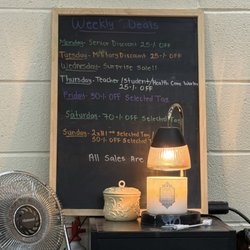 Weekly Deals
Monday - Senior Discount 25% OFF
Tuesday - Military Discount 25% OFF
Wednesday - Surprise Sale!!
Thursday - Teacher/Student/Health Care Workers
25% OFF
Friday - 50% OFF Selected Tag
Saturday - 70% OFF Selected Tag
Sunday - 2x $1 Selected Tag
50% OFF Selected Tag
All Sales Are